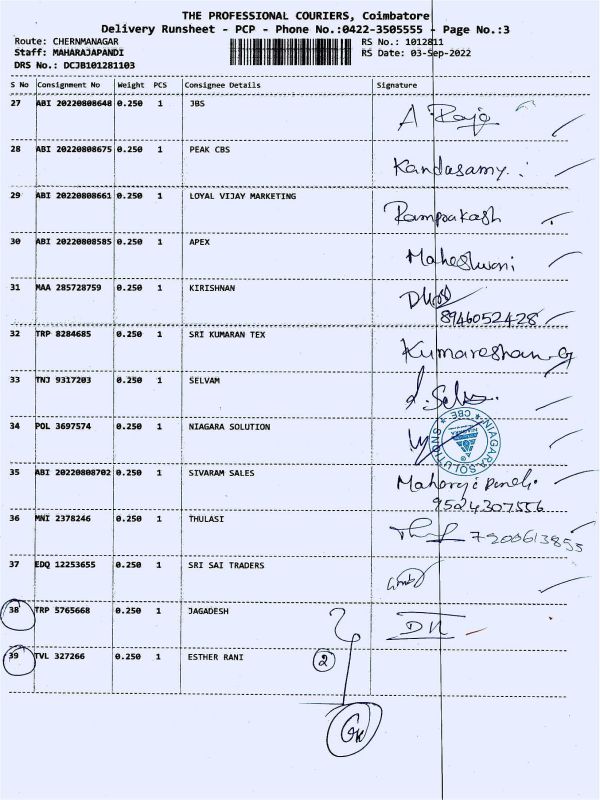 THE PROFESSIONAL COURIERS, Coimbatore
Delivery Runsheet - PCP - Phone No.:0422-3505555 - Page No.:3
Route: CHERNMANAGAR RS No.: 1012811
Staff: MAHARAJAPANDI RS Date: 03-Sep-2022
DRS No.: DCJB101281103
S No Consignment No Weight PCS Consignee Details Signature
27 ABI 20220808648 0.250 1 JBS A Raja
28 ABI 20220808675 0.250 1 PEAK CBS Kandasamy
29 ABI 20220808661 0.250 1 LOYAL VIJAY MARKETING Ramprakash
30 ABI 20220808585 0.250 1 APEX Maheshwari
31 MAA 285728759 0.250 1 KIRISHNAN
8946052428
32 TRP 8284685 0.250 1 SRI KUMARAN TEX Kumareshan G
33 TNJ 9317203 0.250 1 SELVAM
34 POL 3697574 0.250 1 NIAGARA SOLUTION
NIAGARA SOLUTIONS * CBE *
35 ABI 20220808702 0.250 1 SIVARAM SALES
9524307556
36 MNI 2378246 0.250 1 THULASI 7200613855
37 EDQ 12253655 0.250 1 SRI SAI TRADERS
38 TRP 5765668 0.250 1 JAGADESH
39 TVL 327266 0.250 1 ESTHER RANI 2